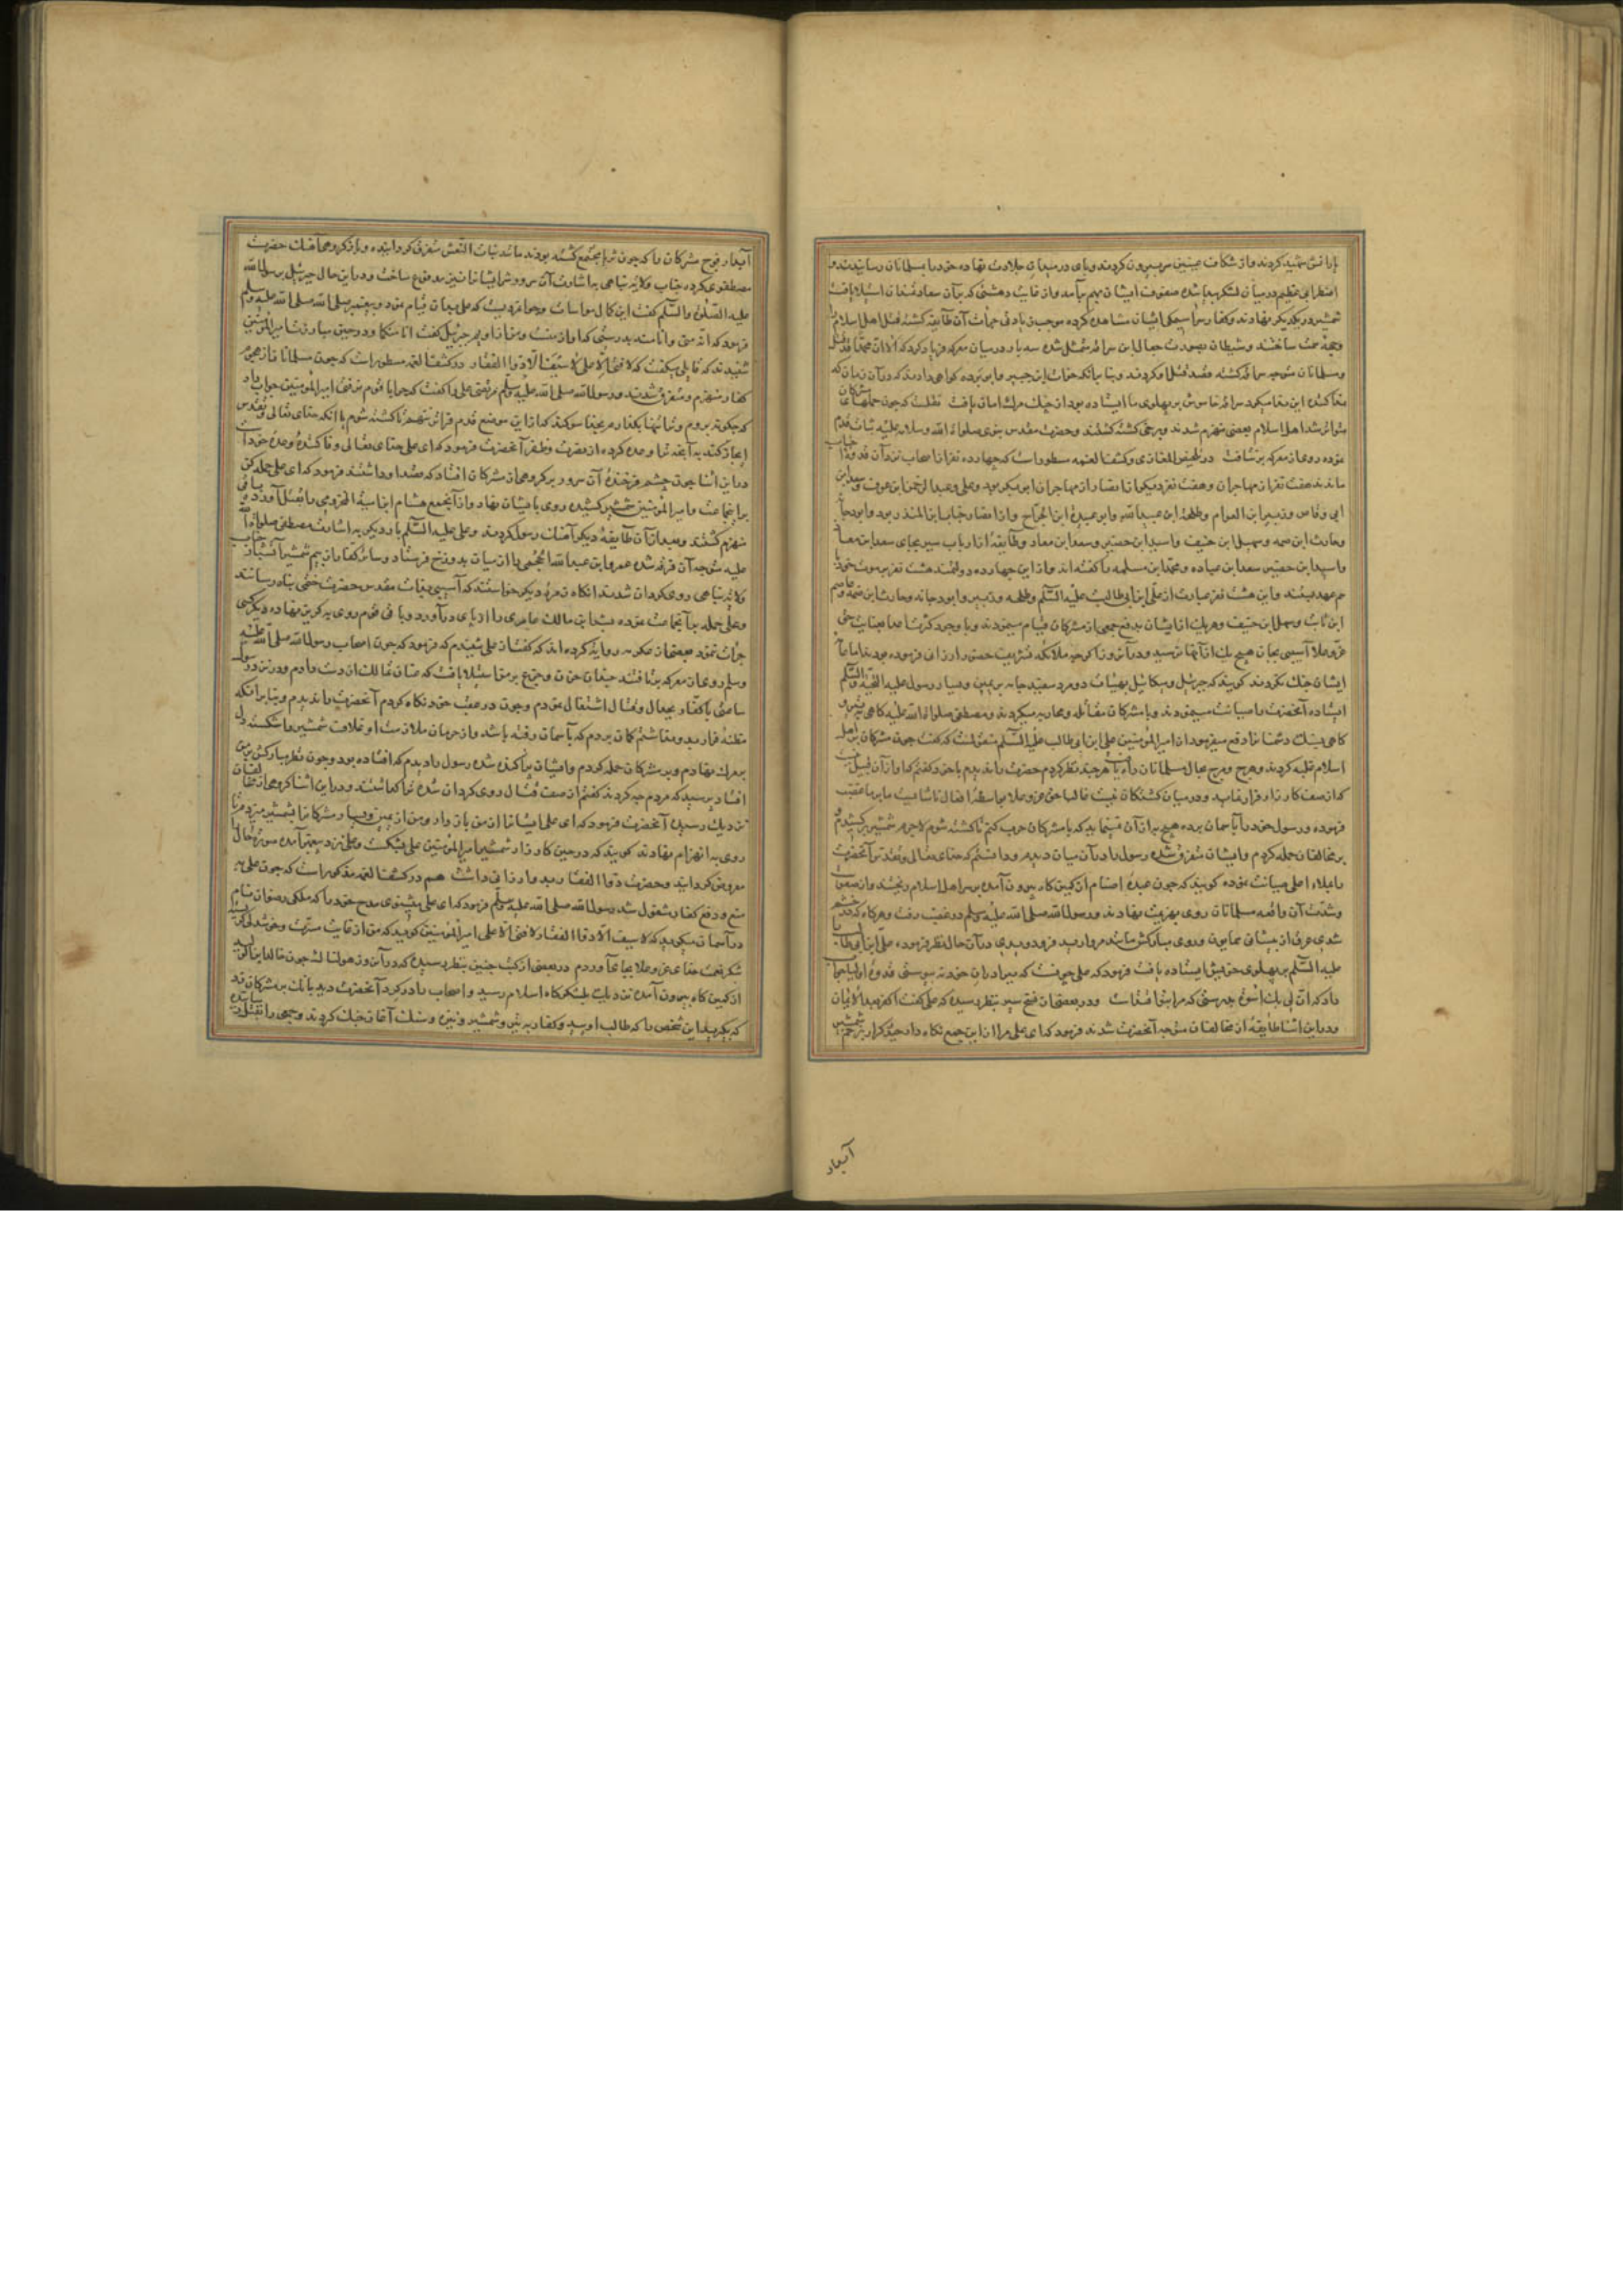 یارانش شهید کردند و از شکاف عینین سر بیرون کردند و پای در میدان جلادت نهاده خود را بمسلمانان رسانیدند و
اضطرابی عظیم در میان لشکر پیدا شده صفوف ایشان بهم برآمد و از غایت دهشتی که بر آن سعادتمندان استیلا یافت
شمشیر در یکدیگر نهادند و کفار سراسیمگی ایشان مشاهده کرده موجب زیادتی جرأت آن طایفه گشته قتل اهل اسلام را
وجهه همت ساختند و شیطان بصورت جعال ابن سراقه متمثل شده سه بار در میان معرکه فریاد کرد که الا ان محمدا قد قتل
و مسلمانان متوجه سراقه گشته قصد قتل او کردند و بنا بر آنکه خوات ابن جبیر و ابو برده گواهی دادند که در آن زمان که
منا کننده این ندا میکرد سراقه خاموش بر پهلوی ما ایستاده بود از چنک مرک امان یافت نقلست که چون حملهای مشرکان
متواتر شد اهل اسلام بعضی منهزم شدند و برخی کشته گشتند و حضرت مقدس نبوی صلوات الله و سلامه علیه ثبات قدم
نموده روی از معرکه برنتافت در تلخیص المغازی و کشف الغمه مسطور است که چهارده نفر از اصحاب نزد آن قدوه احباب
ماندند هفت نفر از مهاجران و هفت نفر دیگر از انصار از مهاجران ابو بکر بود و علی و عبد الرحمن ابن عوف و سعد ابن
ابی وقاص و زبیر ابن العوام و طلحه ابن عبید الله و ابو عبیده ابن الجراح و از انصار حباب ابن المنذر بود و ابو دجانه
و حارث ابن صمه و سهیل ابن حنیف و اسید ابن حضیر و سعد ابن معاد و طایفه از ارباب سیر بجای سعد ابن معاد
و اسید ابن حضیر سعد ابن عباده و محمد ابن مسلمه را گفته اند و از این چهارده دولتمند هشت نفر بموت خود با
هم عهد بستند و این هشت نفر عبارت از علی ابن ابی طالب علیه السلم و طلحه و زبیر و ابو دجانه و حارث ابن صمه و عاصم
ابن ثابت و سهل ابن حنیف و هر یک از ایشان بدفع جمعی از مشرکان قیام مینمودند و با وجود کثرت اعدا بعنایت حق
عز و علا آسیبی بجان هیچ یک از آنها نرسید و در آن روز اگر چه ملائکه تشریف حضور ارزانی فرموده بودند اما با
ایشان جنک نکردند گویند که جبرئیل و میکائیل بهیأت دو مرد سفید جامه بر یمین و یسار رسول علیه التحیه و السلم
ایستاده آنحضرت را صیانت مینمودند و با مشرکان مقاتله و محاربه میکردند و مصطفی صلوات الله علیه گاهی بتیر و
گاهی بسنک دشمنان را دفع میفرمود از امیر المؤمنین علی ابن ابی طالب علیه السلم منقولست که گفت چون مشرکان بر اهل
اسلام غلبه کردند و هرج و مرج بحال مسلمانان راه یافت هر چند نظر کردم حضرت را ندیدم با خود گفتم که او از آن قبیل نیست
که از صف کارزار فرار نماید و در میان کشتگان نیست غالبا حق عز و علا بواسطه افعال ناشایست ما بر ما غضب
فرموده و رسول خود را بآسمان برده هیچ به از آن نمینماید که با مشرکان حرب کنم تا کشته شوم لاجرم شمشیر برکشیدم و
بر مخالفان حمله کردم و ایشان متفرق شده رسول را در آن میان دیدم و دانستم که خدای تعالی و تقدس آنحضرت
را بملاء اعلی صیانت نموده گویند که چون عبده اصنام از کمین گاه بیرون آمده بر سر اهل اسلام ریختند و از صعوبت
و شدت آن واقعه مسلمانان روی بهزیمت نهادند و رسول الله صلی الله علیه و سلم در غضب رفت و هر گاه که در خشم
شدی عرق از پیشانی همایون و روی مبارکش مانند مروارید فرود ویدی در آن حال نظر فرموده علی ابن ابی طالب را
علیه السلم بر پهلوی خویش ایستاده یافت فرمود که علی چونست که ببرادران خود نه پیوستی قدوه اولیا جواب
داد که ان لی بک اسوة بدرستی که مرا بتو اقتداست و در بعضی از نسخ سیر بنظر رسیده که علی گفت اکفر بعد الایمان
و در این اثنا طایفه از مخالفان متوجه آنحضرت شدند فرمود که ای علی مرا از این جمع نگاه دار حیدر کرار بزخم شمشیر
آبدار
آبدار فوج مشرکان را که چون ثریا مجتمع گشته بودند مانند بنات النعش متفرق گردانیده و باز گروهی آهنک حضرت
مصطفوی کرده جناب ولایت پناهی باشارت آن سرور شر ایشان را نیز مدفوع ساخت و در این حال جبرئیل بر رسول الله
علیه الصلوة و السلم گفت این کمال مواسات و جوانمردیست که علی بدان قیام نمود و پیغمبر صلی الله علیه و سلم
فرمود که انه منی و انا منه بدرستی که او از منست و من از او پس جبرئیل گفت انا منکما و در حین مبارزت امیر المؤمنین
شنیدند که قایلی میگفت که لا فتی الا علی لا سیف الا ذو الفقار و در کشف الغمه مسطور است که چون مسلمانان از هجوم
کفار منهزم و متفرق شدند و رسول الله صلی الله علیه و سلم مرتضی علی را گفت که چرا با قوم نرفتی امیر المؤمنین جواب داد
که چگونه بروم و ترا تنها بگذارم بخدا سوگند که از این موضع قدم فراتر ننهم تا کشته شوم یا آنکه خدای تعالی و تقدس
انجاز کند به آنچه ترا وعده کرده از نصرت و ظفر آنحضرت فرمود که ای علی خدای تعالی وفا کننده وعده خود است
در این اثنا چون چشم فرخنده آن سرور بر گروهی از مشرکان افتاد که قصد او داشتند فرمود که ای علی حمله کن
بر این جماعت و امیر المؤمنین شمشیر کشیده روی بایشان نهاد و از آنجمع هشام ابن امیه المخزومی را بقتل آورد و باقی
منهزم گشتند و بعد از آن طایفه دیگر آهنک رسول کردند و علی علیه السلم بار دیگر باشارت مصطفی صلوات الله
علیه متوجه آن فرقه شده عمرو ابن عبد الله الجمحی را از میان بدوزخ فرستاد و سائر کفار از بیم شمشیر آتشبار جناب
ولایت پناهی روی گردان شدند آنگاه زمره دیگر خواستند که آسیبی بذات مقدس حضرت ختمی پناه رسانند
و علی حمله بر آنجماعت نموده بشر ابن مالک عامری را از پای در آورد و باقی قوم روی به گریز نهاده دیگر کسی
جرأت ننمود بعضی از عکرمه روایت کرده اند که گفت از علی شنیدم که فرمود که چون اصحاب رسول الله صلی الله علیه
و سلم روی از معرکه برتافتند چندان حزن و جزع بر من استیلا یافت که عنان تمالک از دست دادم و در نزد رسول
ساعتی با کفار بجدال و قتال اشتغال نمودم و چون در عقب خود نگاه کردم آنحضرت را ندیدم و بنا بر آنکه
مظنه فرار بدو نداشتم گمان بردم که بآسمان رفته باشد و از حرمان ملازمت او غلاف شمشیر را شکسته دل
بر مرک نهادم و بر مشرکان حمله کردم و ایشان پراکنده شده رسول را دیدم که افتاده بود و چون نظر مبارکش بر من
افتاد پرسید که مردم چه کردند گفتم از صف قتال روی گردان شده ترا گذاشتند و در این اثنا گروهی از مخالفان
نزدیک رسیده آنحضرت فرمود که ای علی ایشان را از من باز دار و من از یمین و یسار مشرکان را بشمشیر میزدم تا
روی به انهزام نهادند گویند که در حین کارزار شمشیر امیر المؤمنین علی بشکست و علی نزد پیغمبر آمده صورت حال را
معروض گردانید و حضرت ذو الفقار بدو ارزانی داشت هم در کشف الغمه مذکور است که چون علی به
منع و دفع کفار مشغول شد رسول الله صلی الله علیه و سلم فرمود که ای علی میشنوی مدح خود را که ملکی رضوان نام
در آسمان میگوید که لا سیف الا ذو الفقار لا فتی الا علی امیر المؤمنین گوید که من از غایت مسرت و خوشدلی گریسته
شکر نعمت خدای عز و علا بجای آوردم در بعضی از کتب چنین بنظر رسیده که در آن روز هولناک چون خالد ابن الولید
از کمین گاه بیرون آمده نزدیک بلشکرگاه اسلام رسید و اصحاب را در گرد آنحضرت دید بانک بر مشرکان زد
که بگیرید این شخص را که طالب اوئید و کفار به تیر و شمشیر و نیزه و سنک آغاز جنک کردند و جمعی را بقتل رسانیده